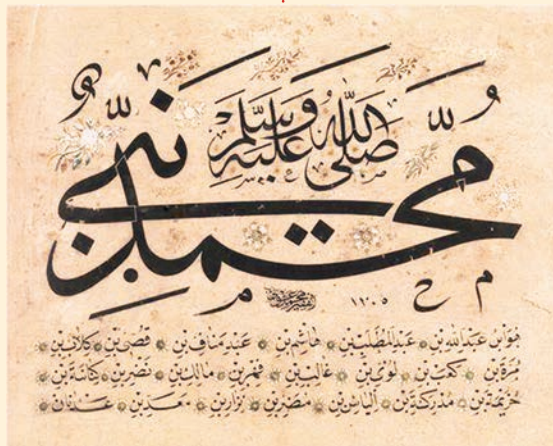 محمد نبي
صلى الله عليه وسلم
م ح م ١٢٠٥
هو ابن عبد الله بن عبد المطلب بن هاشم بن عبد مناف بن قصي بن كلاب بن
مرة بن كعب بن لوي بن غالب بن فهر بن مالك بن نضر بن كنانة بن
خزيمة بن مدركة بن الياس بن مضر بن نزار بن معد بن عدنان